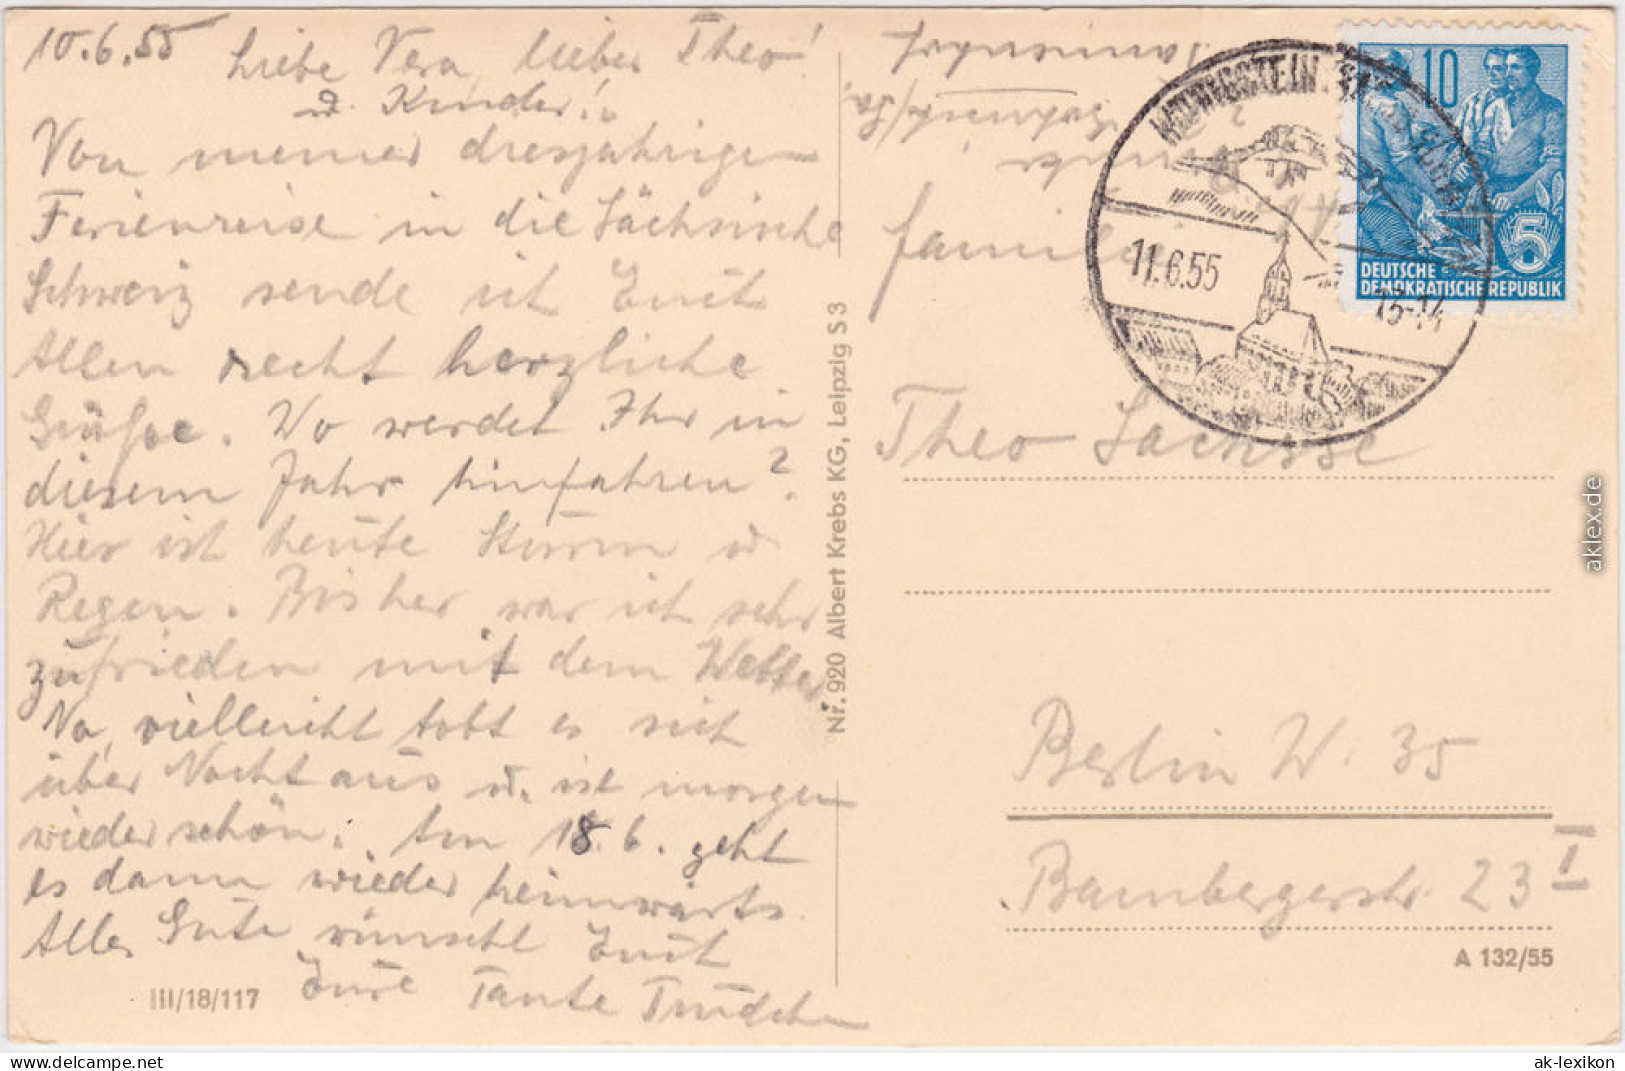 10.6.55 Liebe Vera, lieber Theo!
u. Kinder!
Von meiner diesjährigen
Ferienreise in die Sächsische
Schweiz sende ich Euch
Allen recht herzliche
Grüße. Wo werdet Ihr in
diesem Jahr hinfahren?
Hier ist heute Sturm u
Regen. Bisher war ich sehr
zufrieden mit dem Wetter.
Na, vielleicht tobt es sich
über Nacht aus u. ist morgen
wieder schön. Am 18.6. geht
es dann wieder heimwärts.
Alles Gute wünscht Euch
Eure Tante Trudchen
III/18/117
Nr. 920 Albert Krebs KG, Leipzig S 3
HOHNSTEIN
11.6.55
13-14
10
5
DEUTSCHE
DEMOKRATISCHE REPUBLIK
Familie
Theo Sachsse
Berlin W. 35
Bambergerstr. 23 I
A 132/55
aklex.de
delcampe.net
ak-lexikon